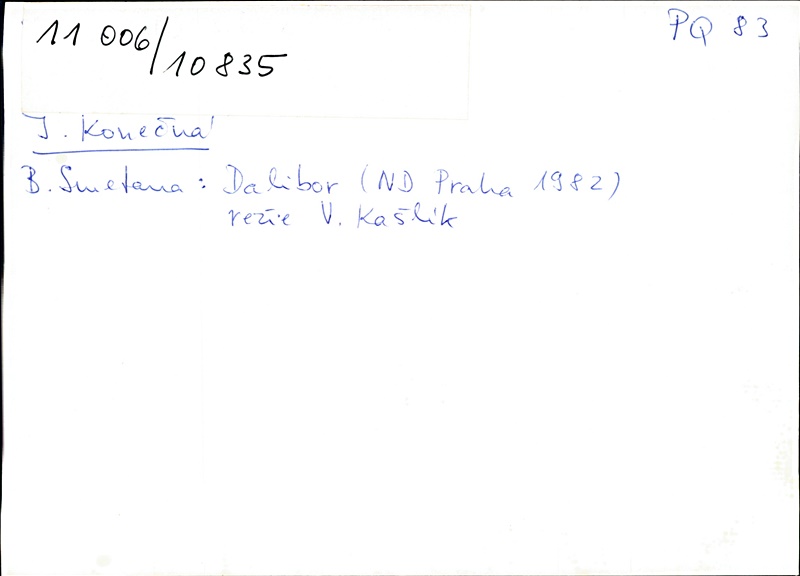 11 006/10 835
PQ 83
J. Konečná
B. Smetana: Dalibor (ND Praha 1982)
režie V. Kašlík